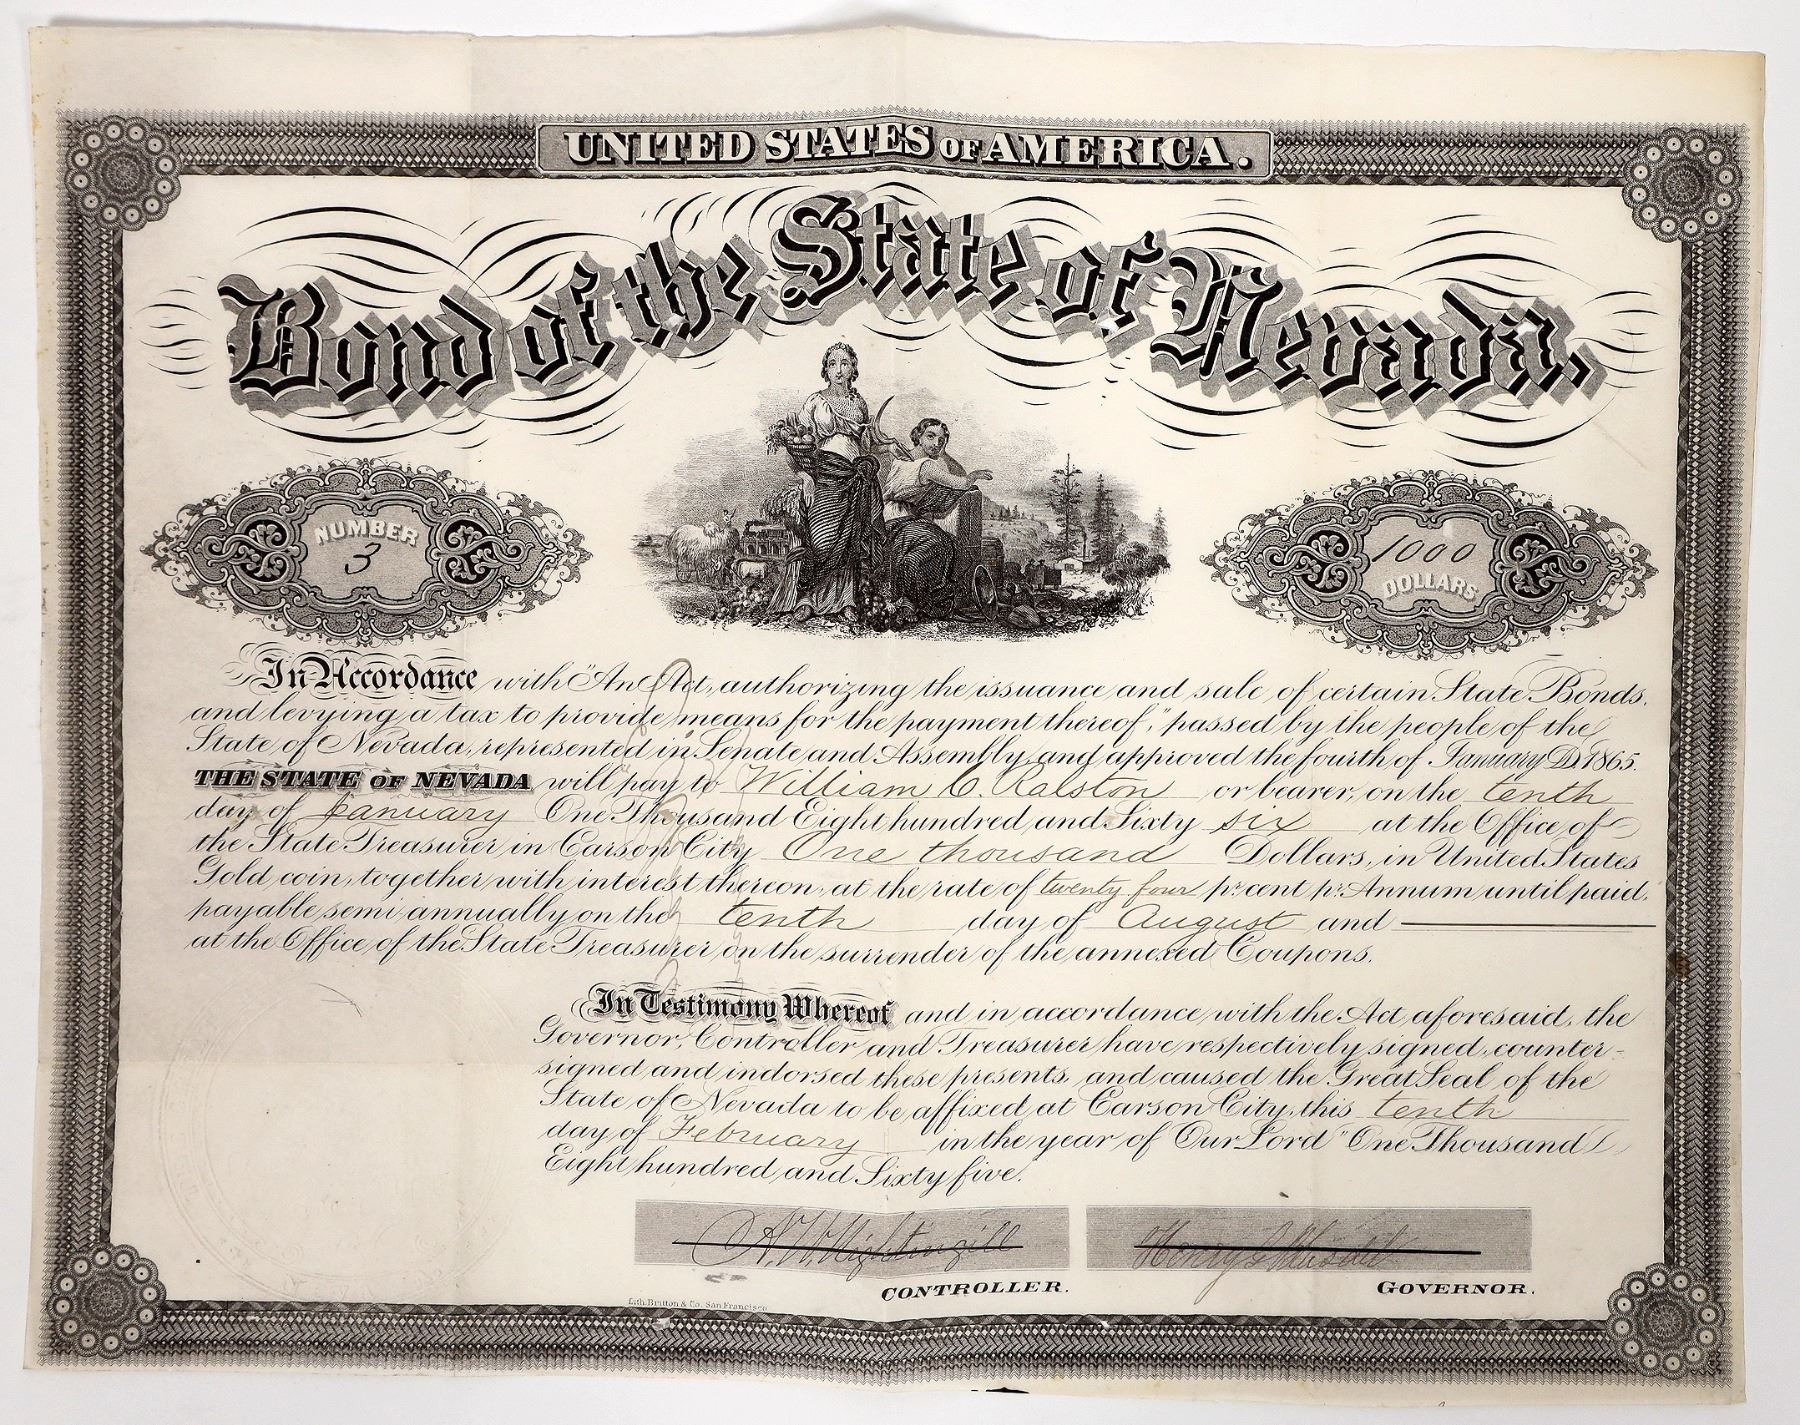 UNITED STATES OF AMERICA.
Bond of the State of Nevada,
NUMBER
3
1000
DOLLARS
In Accordance with "An Act, authorizing the issuance and sale of certain State Bonds,
and levying a tax to provide means for the payment thereof," passed by the people of the
State of Nevada, represented in Senate and Assembly, and approved the fourth of January D. 1865.
THE STATE OF NEVADA will pay to William C. Ralston or bearer, on the tenth
day of January One Thousand Eight hundred and Sixty six at the Office of
the State Treasurer in Carson City One thousand Dollars, in United States
Gold coin, together with interest thereon, at the rate of twenty four pr. cent pr. Annum until paid,
payable semi annually on the tenth day of August and
at the Office of the State Treasurer on the surrender of the annexed Coupons.
In Testimony Whereof and in accordance with the Act aforesaid, the
Governor, Controller and Treasurer have respectively signed, counter-
signed and indorsed these presents, and caused the Great Seal of the
State of Nevada to be affixed at Carson City, this tenth
day of February in the year of Our Lord "One Thousand
Eight hundred and Sixty five."
A. W. Nightingill
Henry G. Blasdel
CONTROLLER.
GOVERNOR.
Lith. Britton & Co. San Francisco